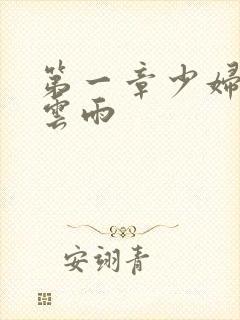 第一章少婦
雲雨
安翊青